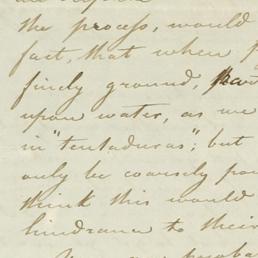 the process, would
fact, that when
finely ground,
upon water, as we
in "tentaduras"; but
only be coarsely
think this would
hindrance to their